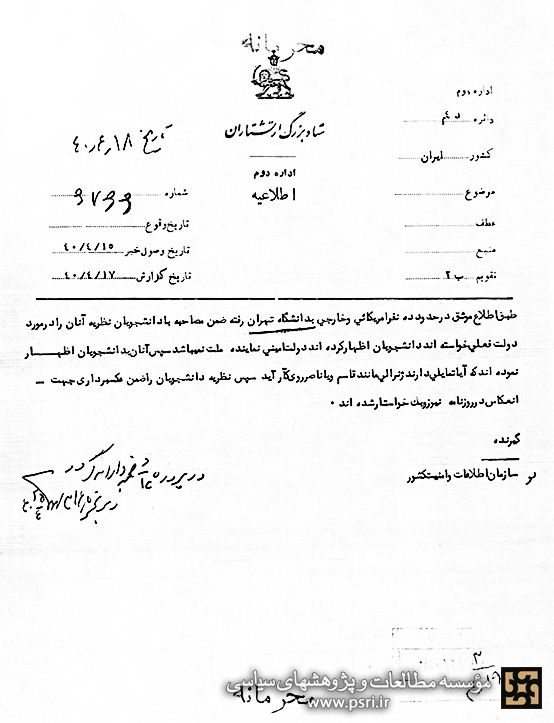 محرمانه
ستاد بزرگ ارتشتاران
اداره دوم
اطلاعیه
اداره دوم
دائره دوم
کشور ایران
موضوع
عطف
منبع
تقویم ب ۲
تاریخ ۴۰٫۴٫۱۸
شماره
تاریخ وقوع
تاریخ وصول خبر ۴۰/۴/۱۵
تاریخ گزارش ۴۰/۴/۱۷
طبق اطلاع موثق در حدود ده نفر امریکائی و خارجی بدانشگاه تهران رفته ضمن مصاحبه با دانشجویان نظریه آنان را در مورد
دولت فعلی خواسته اند دانشجویان اظهار کرده اند دولت امینی نماینده ملت نمیباشد سپس آنان بدانشجویان اظهار
نموده اند که آیا تمایلی دارند ژنرالی مانند قاسم و یا ناصر روی کار آید سپس نظریه دانشجویان را ضمن عکسبرداری جهت -
انعکاس در روزنامه نیوزویک خواستار شده اند ۰
گیرنده
سازمان اطلاعات و امنیت کشور
در پرونده
مؤسسه مطالعات و پژوهشهای سیاسی
www.psri.ir
محرمانه